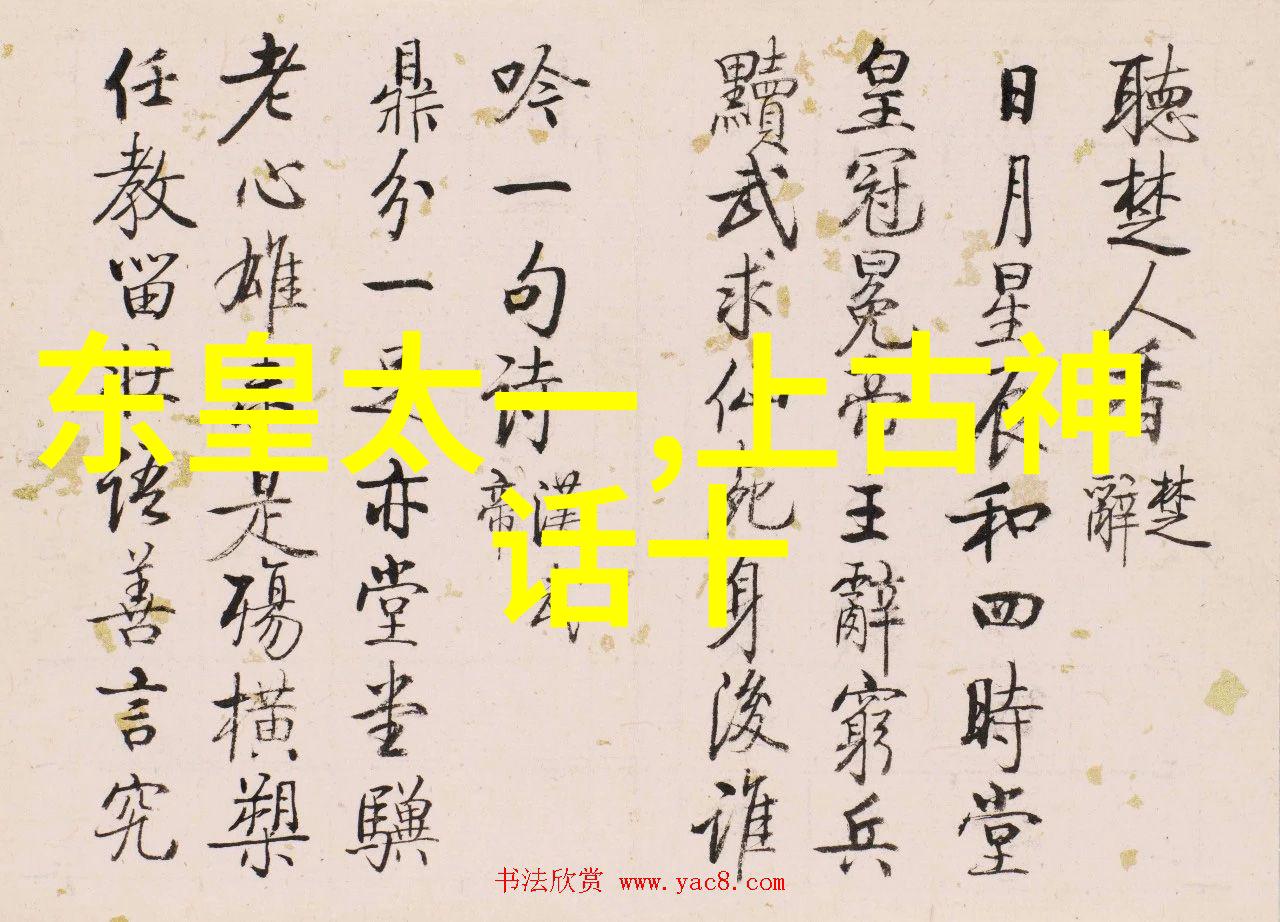 东皇太一,上古神
话十
聽楚人香
楚
辭
日月星辰和四時堂
皇冠冕帝王辭窮兵
黷武求仙死身後誰
吟一句詩
漢武
帝
鼎分一足亦堂堂驥
老心雄未是殤橫槊
任教留語善言究
书法欣赏 www.yac8.com